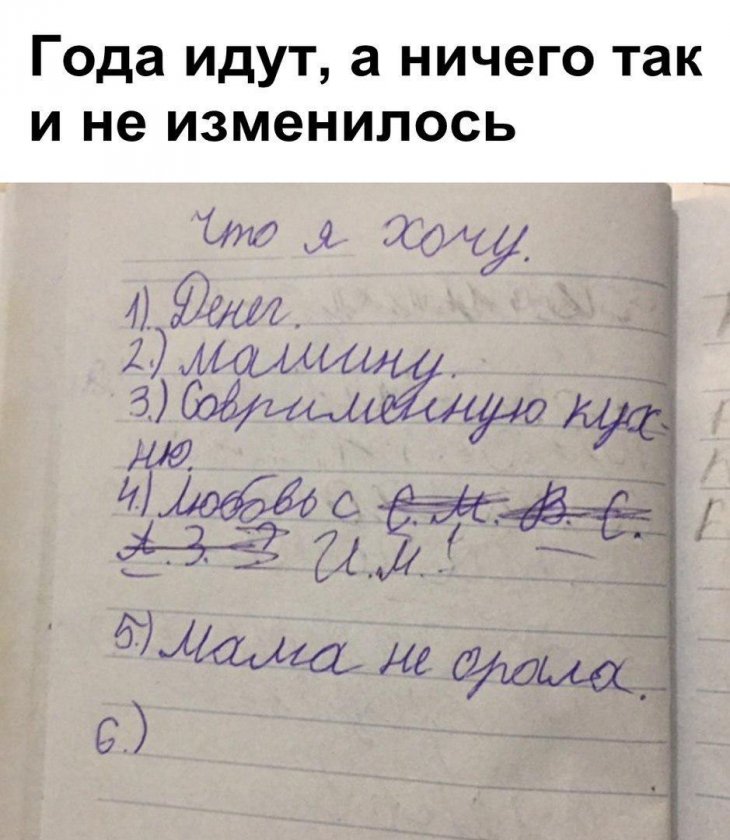 Года идут, а ничего так
и не изменилось
Что я хочу.
1) Денег.
2.) Машину.
3.) Совримменную кух-
ню.
4.) Любовь с С. М. В. С.
А. З. И.М.!
5.) Мама не орала.
6.)